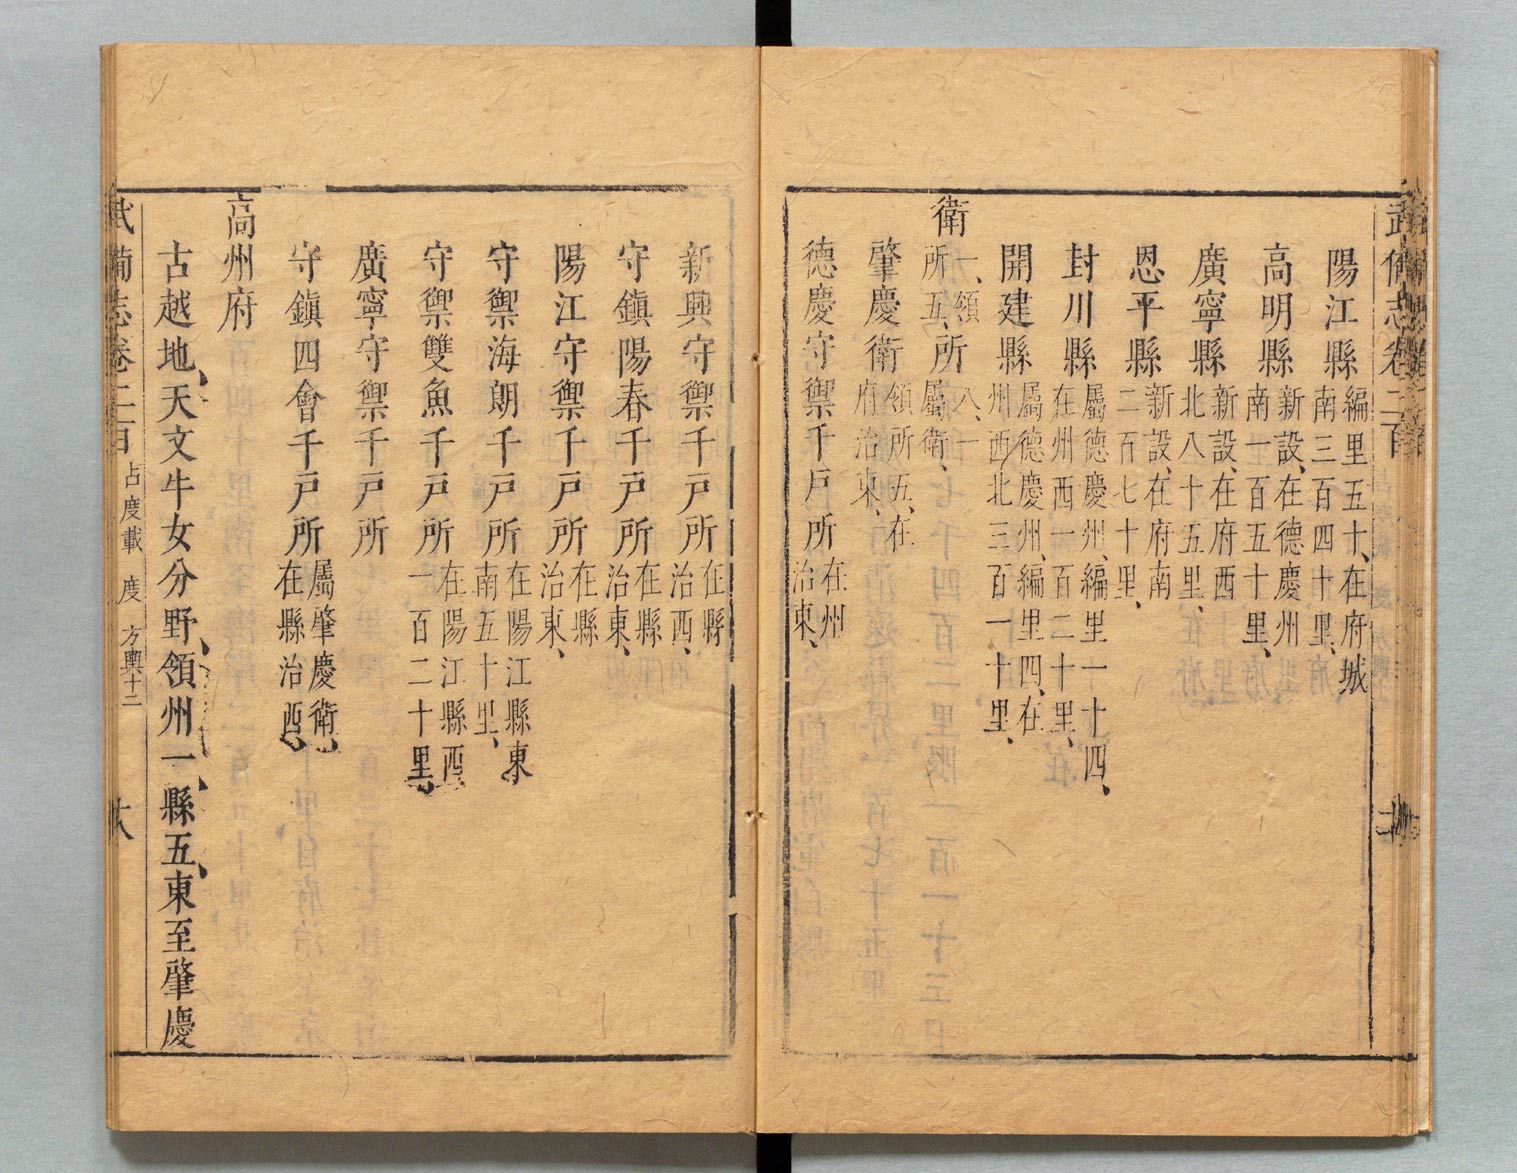 武備志卷二百
陽江縣 編里五十、在府城南三百四十里、
高明縣 新設、在德慶州南一百五十里、
廣寧縣 新設、在府西北八十五里、
恩平縣 新設、在府南二百七十里、
封川縣 屬德慶州、編里一十四、在州西一百二十里、
開建縣 屬德慶州、編里四、在州西北三百一十里、
衛一、領所五、所八、一屬衛、
肇慶衛 領所五、在府治東、
德慶守禦千戶所 在州治東、
新興守禦千戶所 在縣治西、
守鎮陽春千戶所 在縣治東、
陽江守禦千戶所 在縣治東、
守禦海朗千戶所 在陽江縣東南五十里、
守禦雙魚千戶所 在陽江縣西一百二十里、
廣寧守禦千戶所
守鎮四會千戶所 屬肇慶衛、在縣治西、
高州府
古越地、天文牛女分野、領州一、縣五、東至肇慶
武備志卷二百 占度載 度 方輿十二 十八